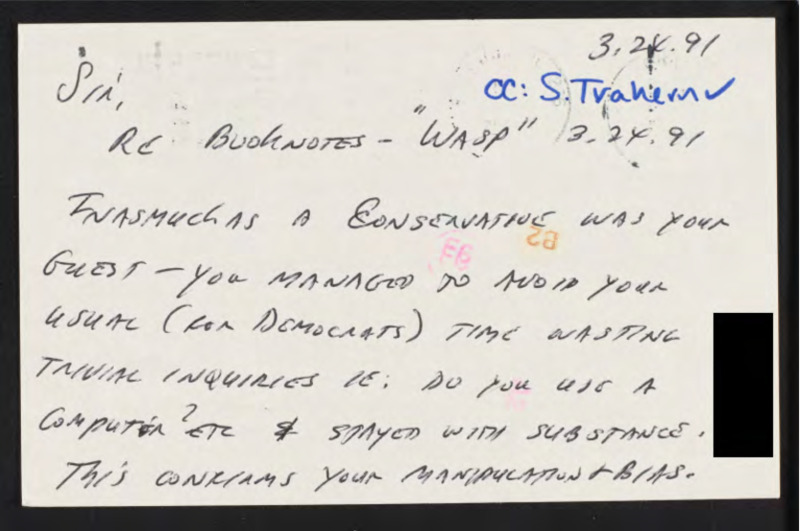 3.24.91
Sir,
cc: S. Trahern ✓
Re Booknotes - "WASP" 3.24.91
Inasmuch as a Conservative was your
guest - you managed to avoid your
usual (for Democrats) time wasting
trivial inquiries ie: do you use a
computer? etc & stayed with substance.
This confirms your manipulation & bias.
F6